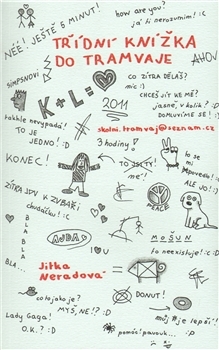 NÉÉ! JEŠTĚ 5 MINUT!
how are you?
já ti nerozumím! :C
TŘÍDNÍ KNÍŽKA
DO TRAMVAJE
AHOJ
SIMPSNOVI
CO ZÍTRA DĚLÁŠ?
nic :)
K + L =
2011
CHCEŠ JÍT KE MĚ?
jasně, v kolik? :D
DOMLUVÍME SE! :)
takhle nevypadá!
TO JE
JEDNO! :D
skolni.tramvaj@seznam.cz
3 hodiny!
KONEC!
TO JSI TY
ALE JO! :D
PEACE
ZÍTRA JDU K ZUBAŘI
chudáčku! :C
BLA
BLA
BLA
BLA...
AUDA
MOŠUN
to neexistuje! :C :D
Jitka
Neradová
co to jako je?
MYŠ, NE!? :D
DONUT!
Lady Gaga!
O.K.? :D
můj # je lepší!
pomóc! pavouk... :D